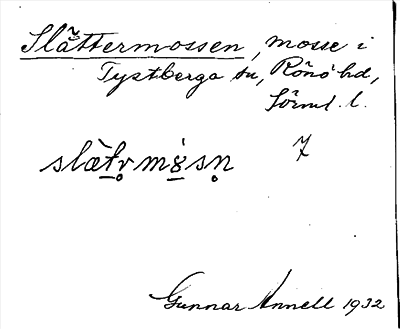 Slåttermossen, mosse i
Tystberga sn, Rönö hd,
Sörml. l.
7
Gunnar Annell 1932